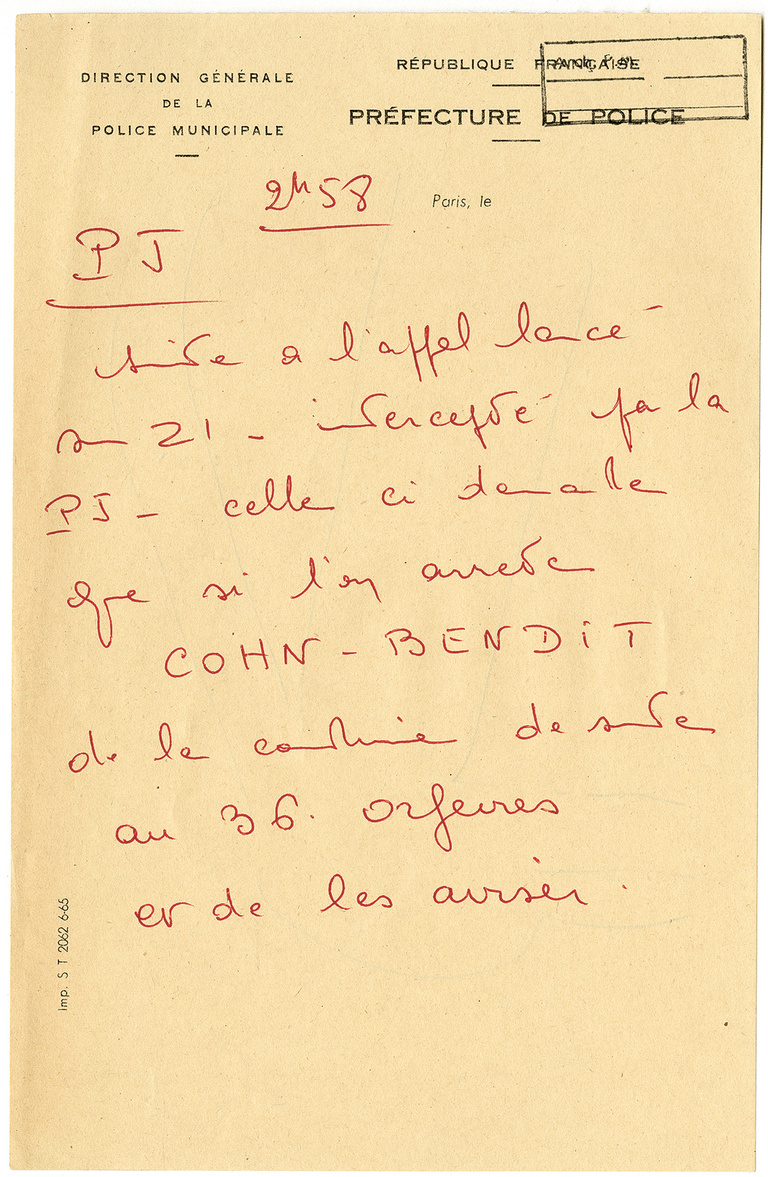 DIRECTION GÉNÉRALE
DE LA
POLICE MUNICIPALE
RÉPUBLIQUE FRANÇAISE
PRÉFECTURE DE POLICE
2h58
Paris, le
PJ
suite a l'appel lancé
sur 21 - intercepté par la
PJ - celle ci demande
que si l'on arrete
COHN-BENDIT
de le conduire de suite
au 36. orfevres
et de les aviser.
Imp. S T 2062 6-65